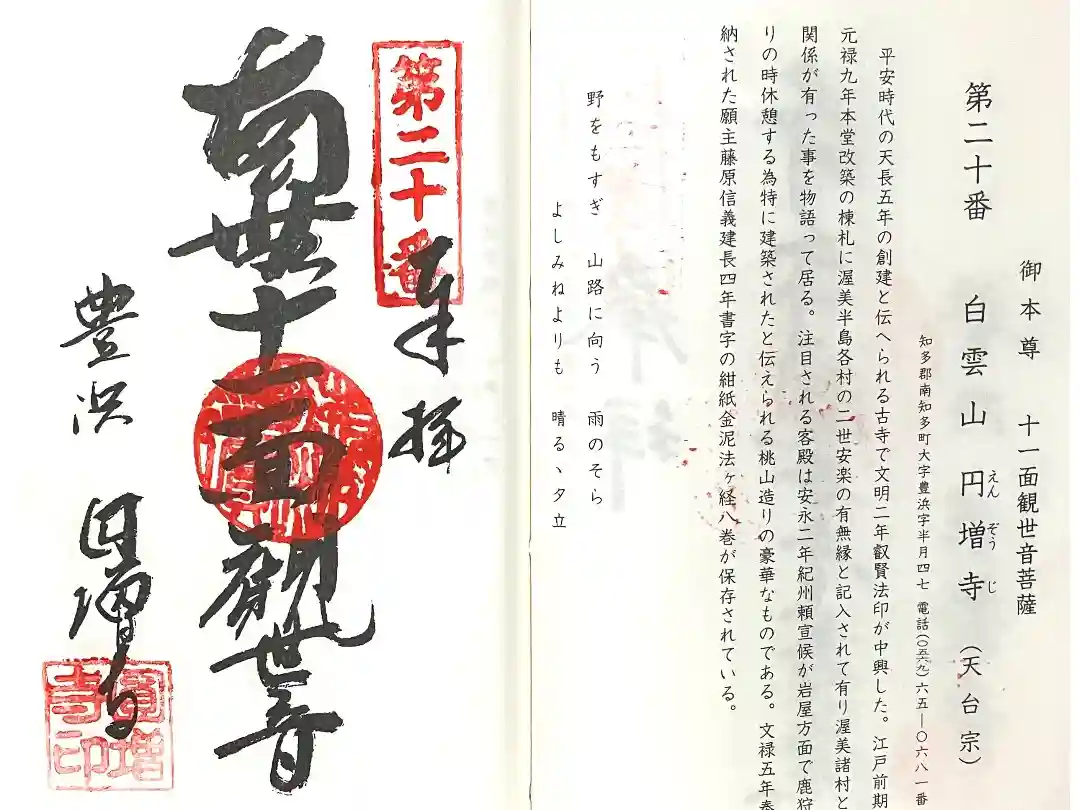 御本尊 十一面観世音菩薩
第二十番 白雲山 円増寺 (天台宗)
えんぞうじ
知多郡南知多町大字豊浜字半月四七 電話(〇五六九)六五―〇六八一番
平安時代の天長五年の創建と伝へられる古寺で文明二年叡賢法印が中興した。江戸前期
元禄九年本堂改築の棟札に渥美半島各村の二世安楽の有無縁と記入されて有り渥美諸村と
関係が有った事を物語って居る。注目される客殿は安永二年紀州頼宣候が岩屋方面で鹿狩
りの時休憩する為特に建築されたと伝えられる桃山造りの豪華なものである。文禄五年奉
納された願主藤原信義建長四年書字の紺紙金泥法ヶ経八巻が保存されている。
野をもすぎ 山路に向う 雨のそら
よしみねよりも 晴るゝ夕立
第二十番
奉拝
南無十一面観世音
豊浜 円増寺
圓増寺印